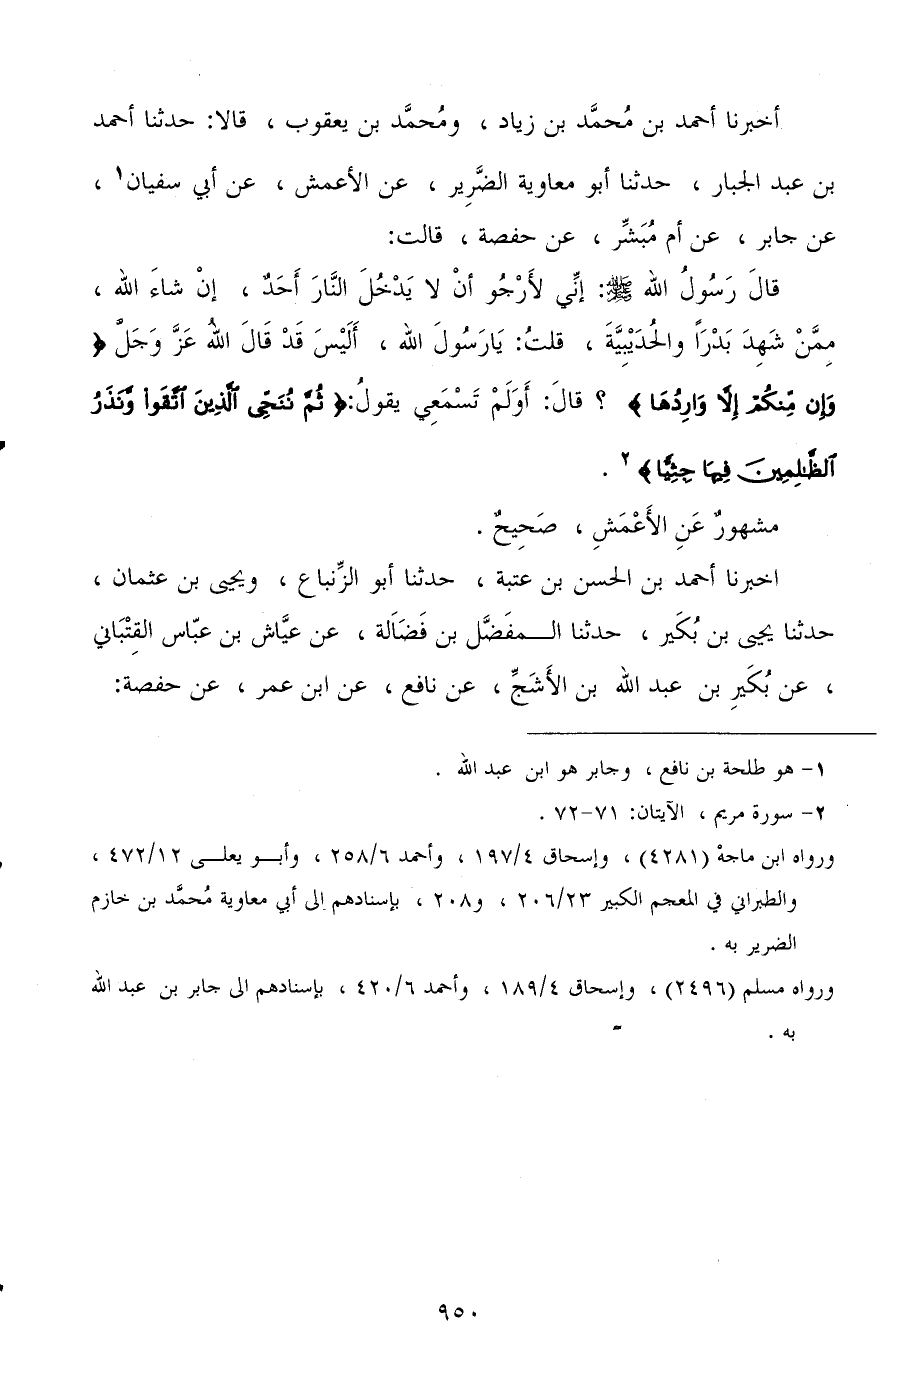 أخبرنا أحمد بن مُحمَّد بن زياد ، ومُحمَّد بن يعقوب ، قالا: حدثنا أحمد
بن عبد الجبار ، حدثنا أبو معاوية الضَّرِير ، عن الأعمش ، عن أبي سفيان١ ،
عن جابر ، عن أم مُبَشِّر ، عن حفصة ، قالت:
قالَ رَسُولُ الله ﷺ: إنِّي لأَرْجُو أنْ لا يَدْخُلَ النَّارَ أَحَدٌ ، إنْ شاءَ الله ،
مِمَّنْ شَهِدَ بَدْرَاً والحُدَيْبِيَّةَ ، قلتُ: يَارَسُولَ الله ، أَلَيْسَ قَدْ قَالَ اللهُ عَزَّ وَجَلَّ ﴿
وَإِن مِّنكُمْ إِلَّا وَارِدُهَا ﴾ ؟ قالَ: أَوَلَمْ تَسْمَعِي يقولُ:﴿ ثُمَّ نُنَجِّى ٱلَّذِينَ ٱتَّقَوا۟ وَّنَذَرُ
ٱلظَّٰلِمِينَ فِيهَا جِثِيًّا ﴾٢ .
مشهورٌ عَنِ الأَعْمَشِ ، صَحِيحٌ .
اخبرنا أحمد بن الحسن بن عتبة ، حدثنا أبو الزِّنباع ، ويحيى بن عثمان ،
حدثنا يحيى بن بُكَير ، حدثنا الـمفَضَّل بن فَضَالة ، عن عيَّاش بن عبّاس القِتْبَاني
، عن بُكَيرِ بن عبد الله بن الأَشَجِّ ، عن نافع ، عن ابن عمر ، عن حفصة:
١- هو طلحة بن نافع ، وجابر هو ابن عبد الله .
٢- سورة مريم ، الآيتان: ٧١-٧٢ .
ورواه ابن ماجهْ (٤٢٨١) ، وإسحاق ١٩٧/٤ ، وأحمد ٢٥٨/٦ ، وأبـو يعلـى ٤٧٢/١٢ ،
والطبراني في المعجم الكبير ٢٠٦/٢٣ ، و٢٠٨ ، بإسنادهم إلى أبي معاوية مُحمَّد بن خازم
الضرير به .
ورواه مسلم (٢٤٩٦) ، وإسحاق ١٨٩/٤ ، وأحمد ٤٢٠/٦ ، بإسنادهم الى جابر بن عبد الله
به .
٩٥٠